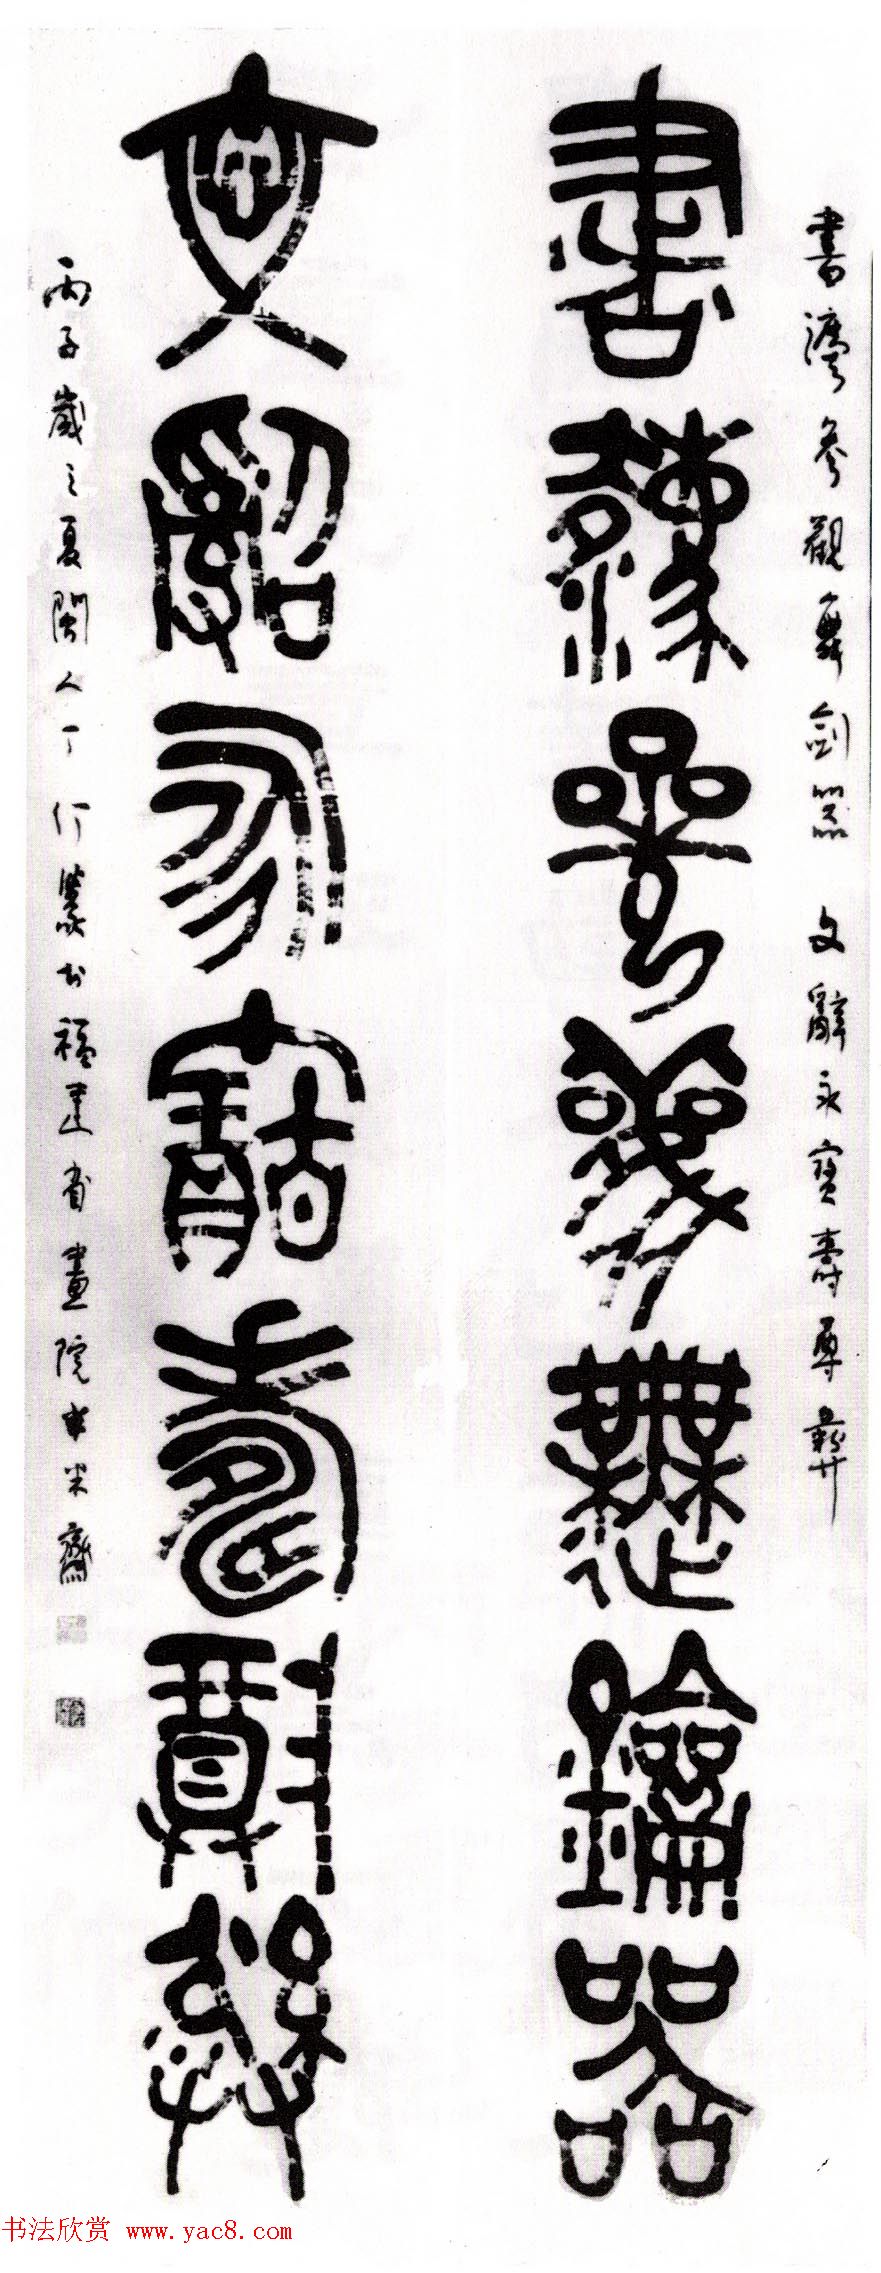 書灋參觀舞劍器 文辭永寶壽尊彝
書灋參觀舞劍器
文辭永寶壽尊彝
丙子歲之夏閩人丁仃篆於福建省畫院半米齋
书法欣赏 www.yac8.com